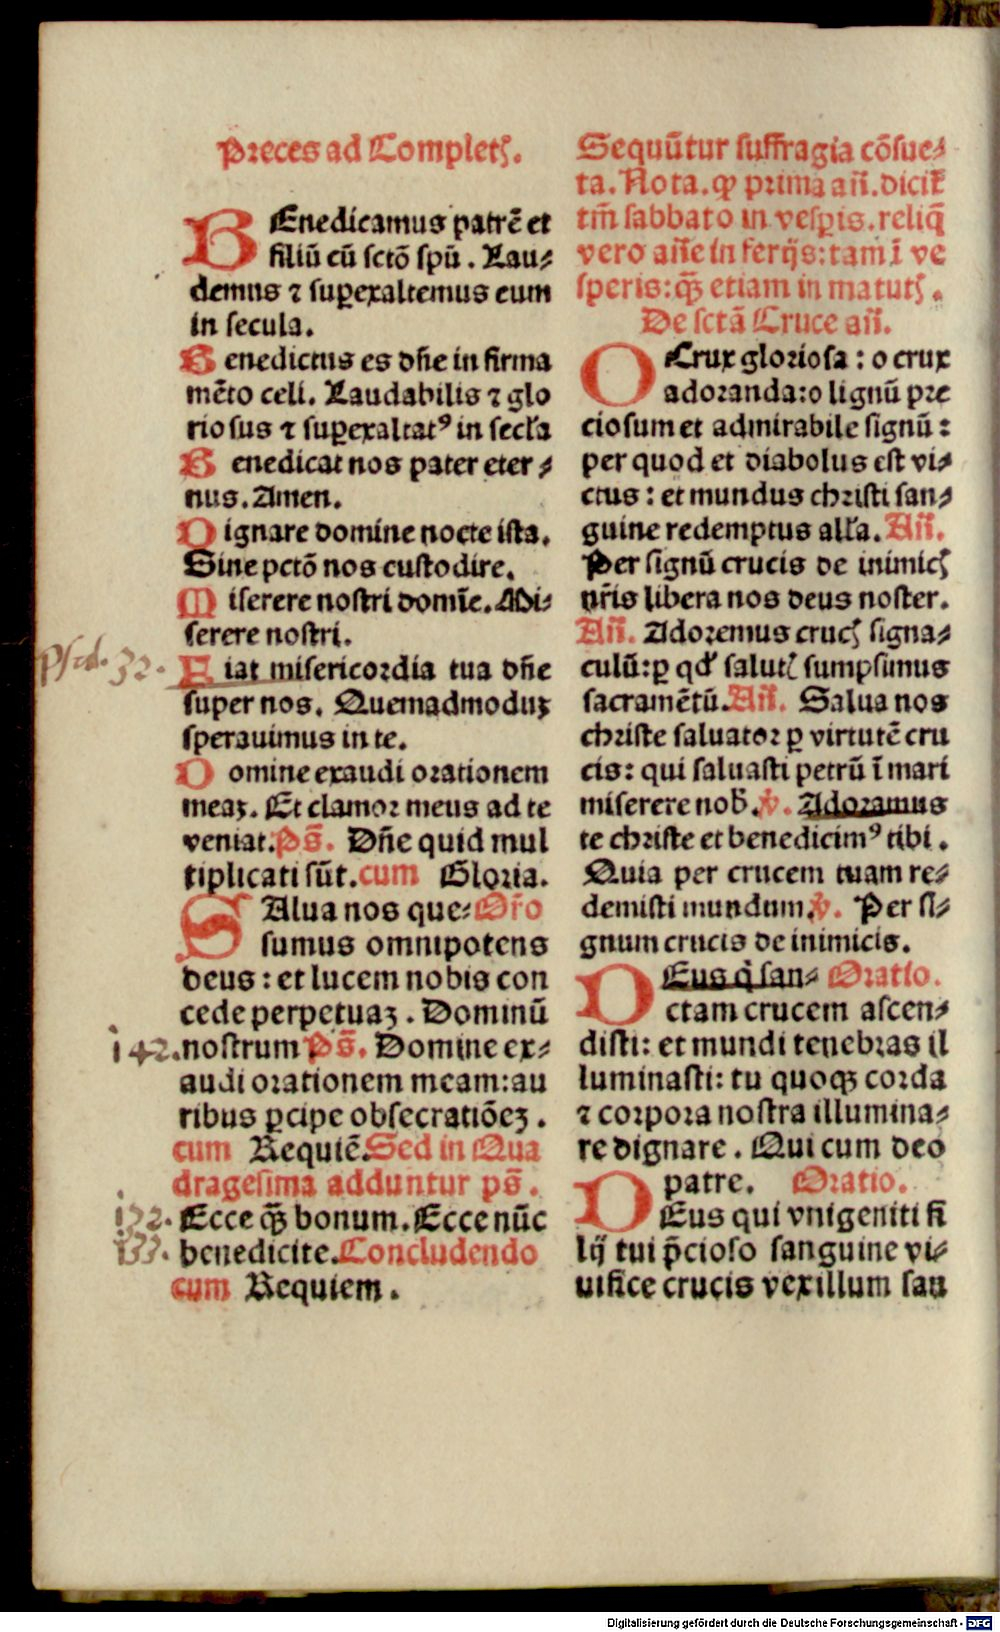 Preces ad Completꝭ.
BEnedicamus patrē et
filiū cū sctō spū. Lau⸗
demus ⁊ suꝑexaltemus eum
in secula.
Benedictus es dn̄e in firma
mēto celi. Laudabilis ⁊ glo
riosus ⁊ suꝑexaltatꝰ in secl̄a
Benedicat nos pater eter⸗
nus. Amen.
Dignare domine nocte ista.
Sine pctō nos custodire.
Miserere nostri domīe. Mi⸗
serere nostri.
psal. 32. Fiat misericordia tua dn̄e
super nos. Quemadmoduꝫ
sperauimus in te.
Domine exaudi orationem
meaꝫ. Et clamor meus ad te
veniat. Ps̄. Dn̄e quid mul
tiplicati sūt. cum Gloria.
SAlua nos que⸗ Or̄o
sumus omnipotens
deus: et lucem nobis con
cede perpetuaꝫ. Dominū
142. nostrum Ps̄. Domine ex⸗
audi orationem meam: au
ribus ꝑcipe obsecratiōeꝫ.
cum Requiē. Sed in Qua
dragesima adduntur ps̄.
132. Ecce ꝙꝫ bonum. Ecce nūc
133. benedicite. Concludendo
cum Requiem.
Sequūtur suffragia cōsue⸗
ta. Nota. ꝙ prima an̄. dicit᷑
tm̄ sabbato in vesꝑis. reliq̄
vero an̄e in ferijs: tam ī ve
speris: ꝙꝫ etiam in matutꝭ.
De sctā Cruce an̄.
O Crux gloriosa: o crux
adoranda: o lignū pre
ciosum et admirabile signū:
per quod et diabolus est vi⸗
ctus: et mundus christi san⸗
guine redemptus all̄a. An̄.
Per signū crucis de inimicꝭ
nr̄is libera nos deus noster.
An̄. Adoremus crucꝭ signa⸗
culū: ꝑ qd̄ salutꝭ sumpsimus
sacramētū. An̄. Salua nos
christe saluator ꝑ virtutē cru
cis: qui saluasti petrū ī mari
miserere nob̄. ℣. Adoramus
te christe et benedicimꝰ tibi.
Quia per crucem tuam re⸗
demisti mundum. ℣. Per si⸗
gnum crucis de inimicis.
DEus q̇ san⸗ Oratio.
ctam crucem ascen⸗
disti: et mundi tenebras il
luminasti: tu quoqꝫ corda
⁊ corpora nostra illumina⸗
re dignare. Qui cum deo
patre. Oratio.
DEus qui vnigeniti fi
lij tui p̄cioso sanguine vi⸗
uifice crucis vexillum san
Digitalisierung gefördert durch die Deutsche Forschungsgemeinschaft - DFG